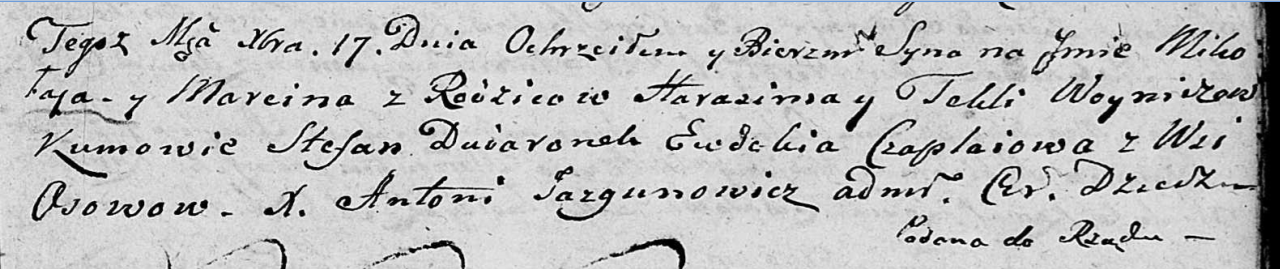 Tegoż Mcā Xbra. 17. Dnia Ochrzciłem y Bierzm: Syna na Jmie Miko
łaja - y Marcina z Rodzicow Harasima y Tekli Woyniczow
Kumowie Stefan Ewdokia Czaplaiowa z Wsi
Osowow - X. Antoni Jazgunowicz admr. Cer.
Podana do Rządu -